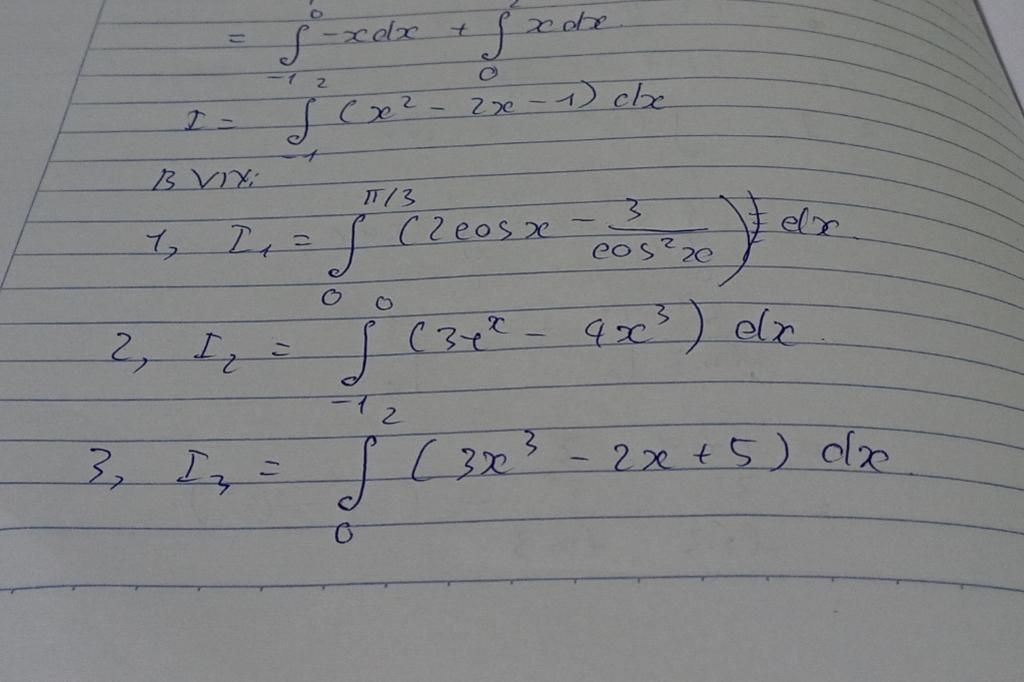 = ∫_{-1}^{0} -xdx + ∫_{0} xdx.
I = ∫_{-1}^{2} (x² - 2x - 1) dx
BVTX:
1, I₁ = ∫_{0}^{π/3} (2cosx - 3/cos²x) dx
2, I₂ = ∫_{-1}^{0} (3e^x - 4x³) dx.
3, I₃ = ∫_{0}^{2} (3x³ - 2x + 5) dx